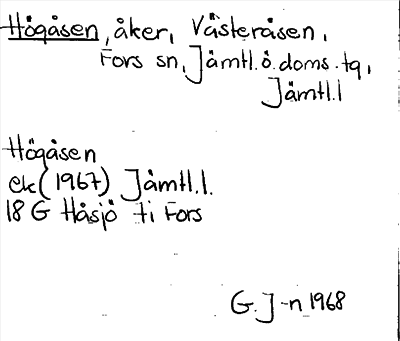 Högåsen, åker, Västeråsen,
Fors sn, Jämtl.ö.doms.tq,
Jämtl.l
Högåsen
ek (1967) Jämtl.l.
18 G Håsjö ti Fors
G. J-n 1968